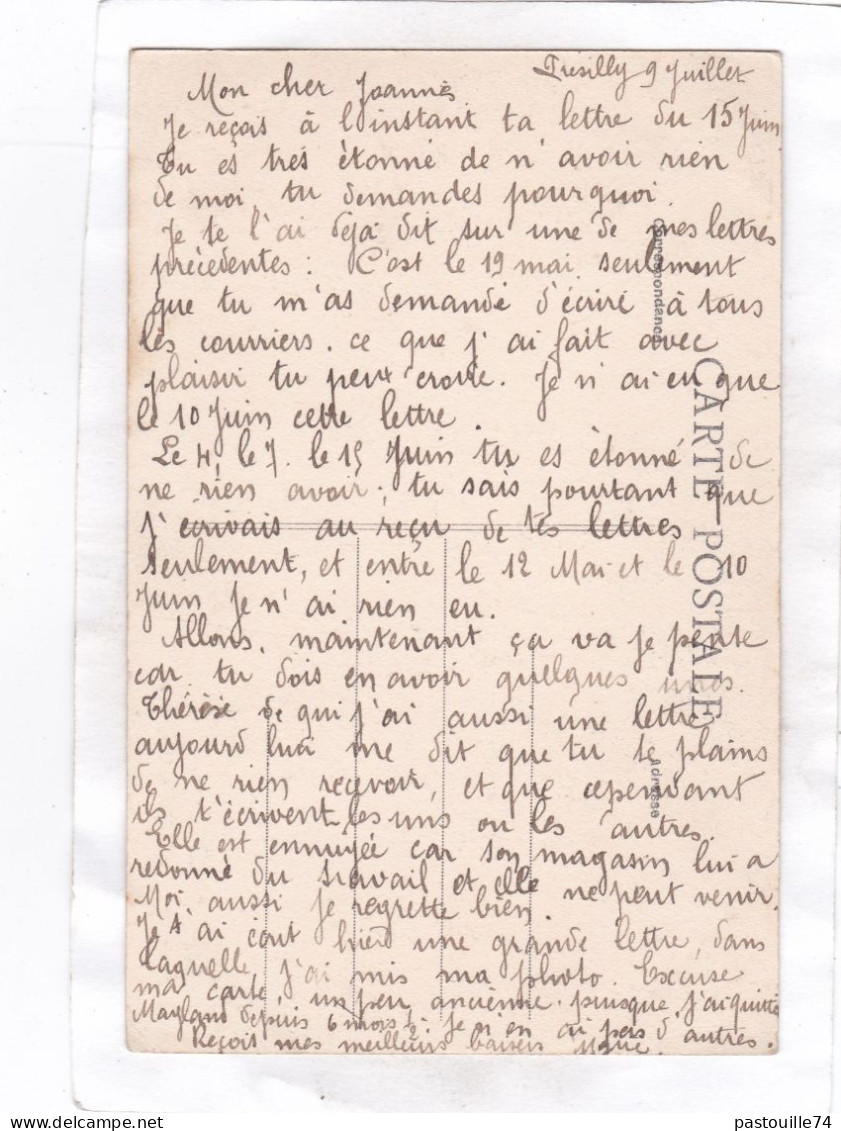 Présilly 9 Juillet
Mon cher Joannès
Je reçois à l'instant ta lettre du 15 Juin
Tu es très étonné de n'avoir rien
de moi, tu demandes pourquoi.
Je te l'ai déjà dit sur une de mes lettres
précédentes : C'est le 19 mai seulement
que tu m'as demandé d'écrire à tous
les courriers. ce que j'ai fait avec
plaisir tu peux croire. Je n'ai eu que
le 10 Juin cette lettre.
Le 4, le 7. le 15 Juin tu es étonné de
ne rien avoir ; tu sais pourtant que
j'écrivais au reçu de tes lettres
seulement, et entre le 12 Mai et le 10
Juin je n'ai rien eu.
Allons, maintenant ça va je pense
car tu dois en avoir quelques unes.
Thérèse de qui j'ai aussi une lettre
aujourd'hui me dit que tu te plains
de ne rien recevoir, et que cependant
ils t'écrivent les uns ou les autres.
Elle est ennuyée car son magasin lui a
redonné du travail et elle ne peut venir.
Moi, aussi je regrette bien.
Je t'ai écrit hier une grande lettre, dans
laquelle j'ai mis ma photo. Excuse
ma carte un peu ancienne. puisque j'ai quitté
Magland depuis 6 mois 1/2. je n'en ai pas d'autres.
Reçois mes meilleurs baisers
CARTE POSTALE
Correspondance
Adresse
pastouille74